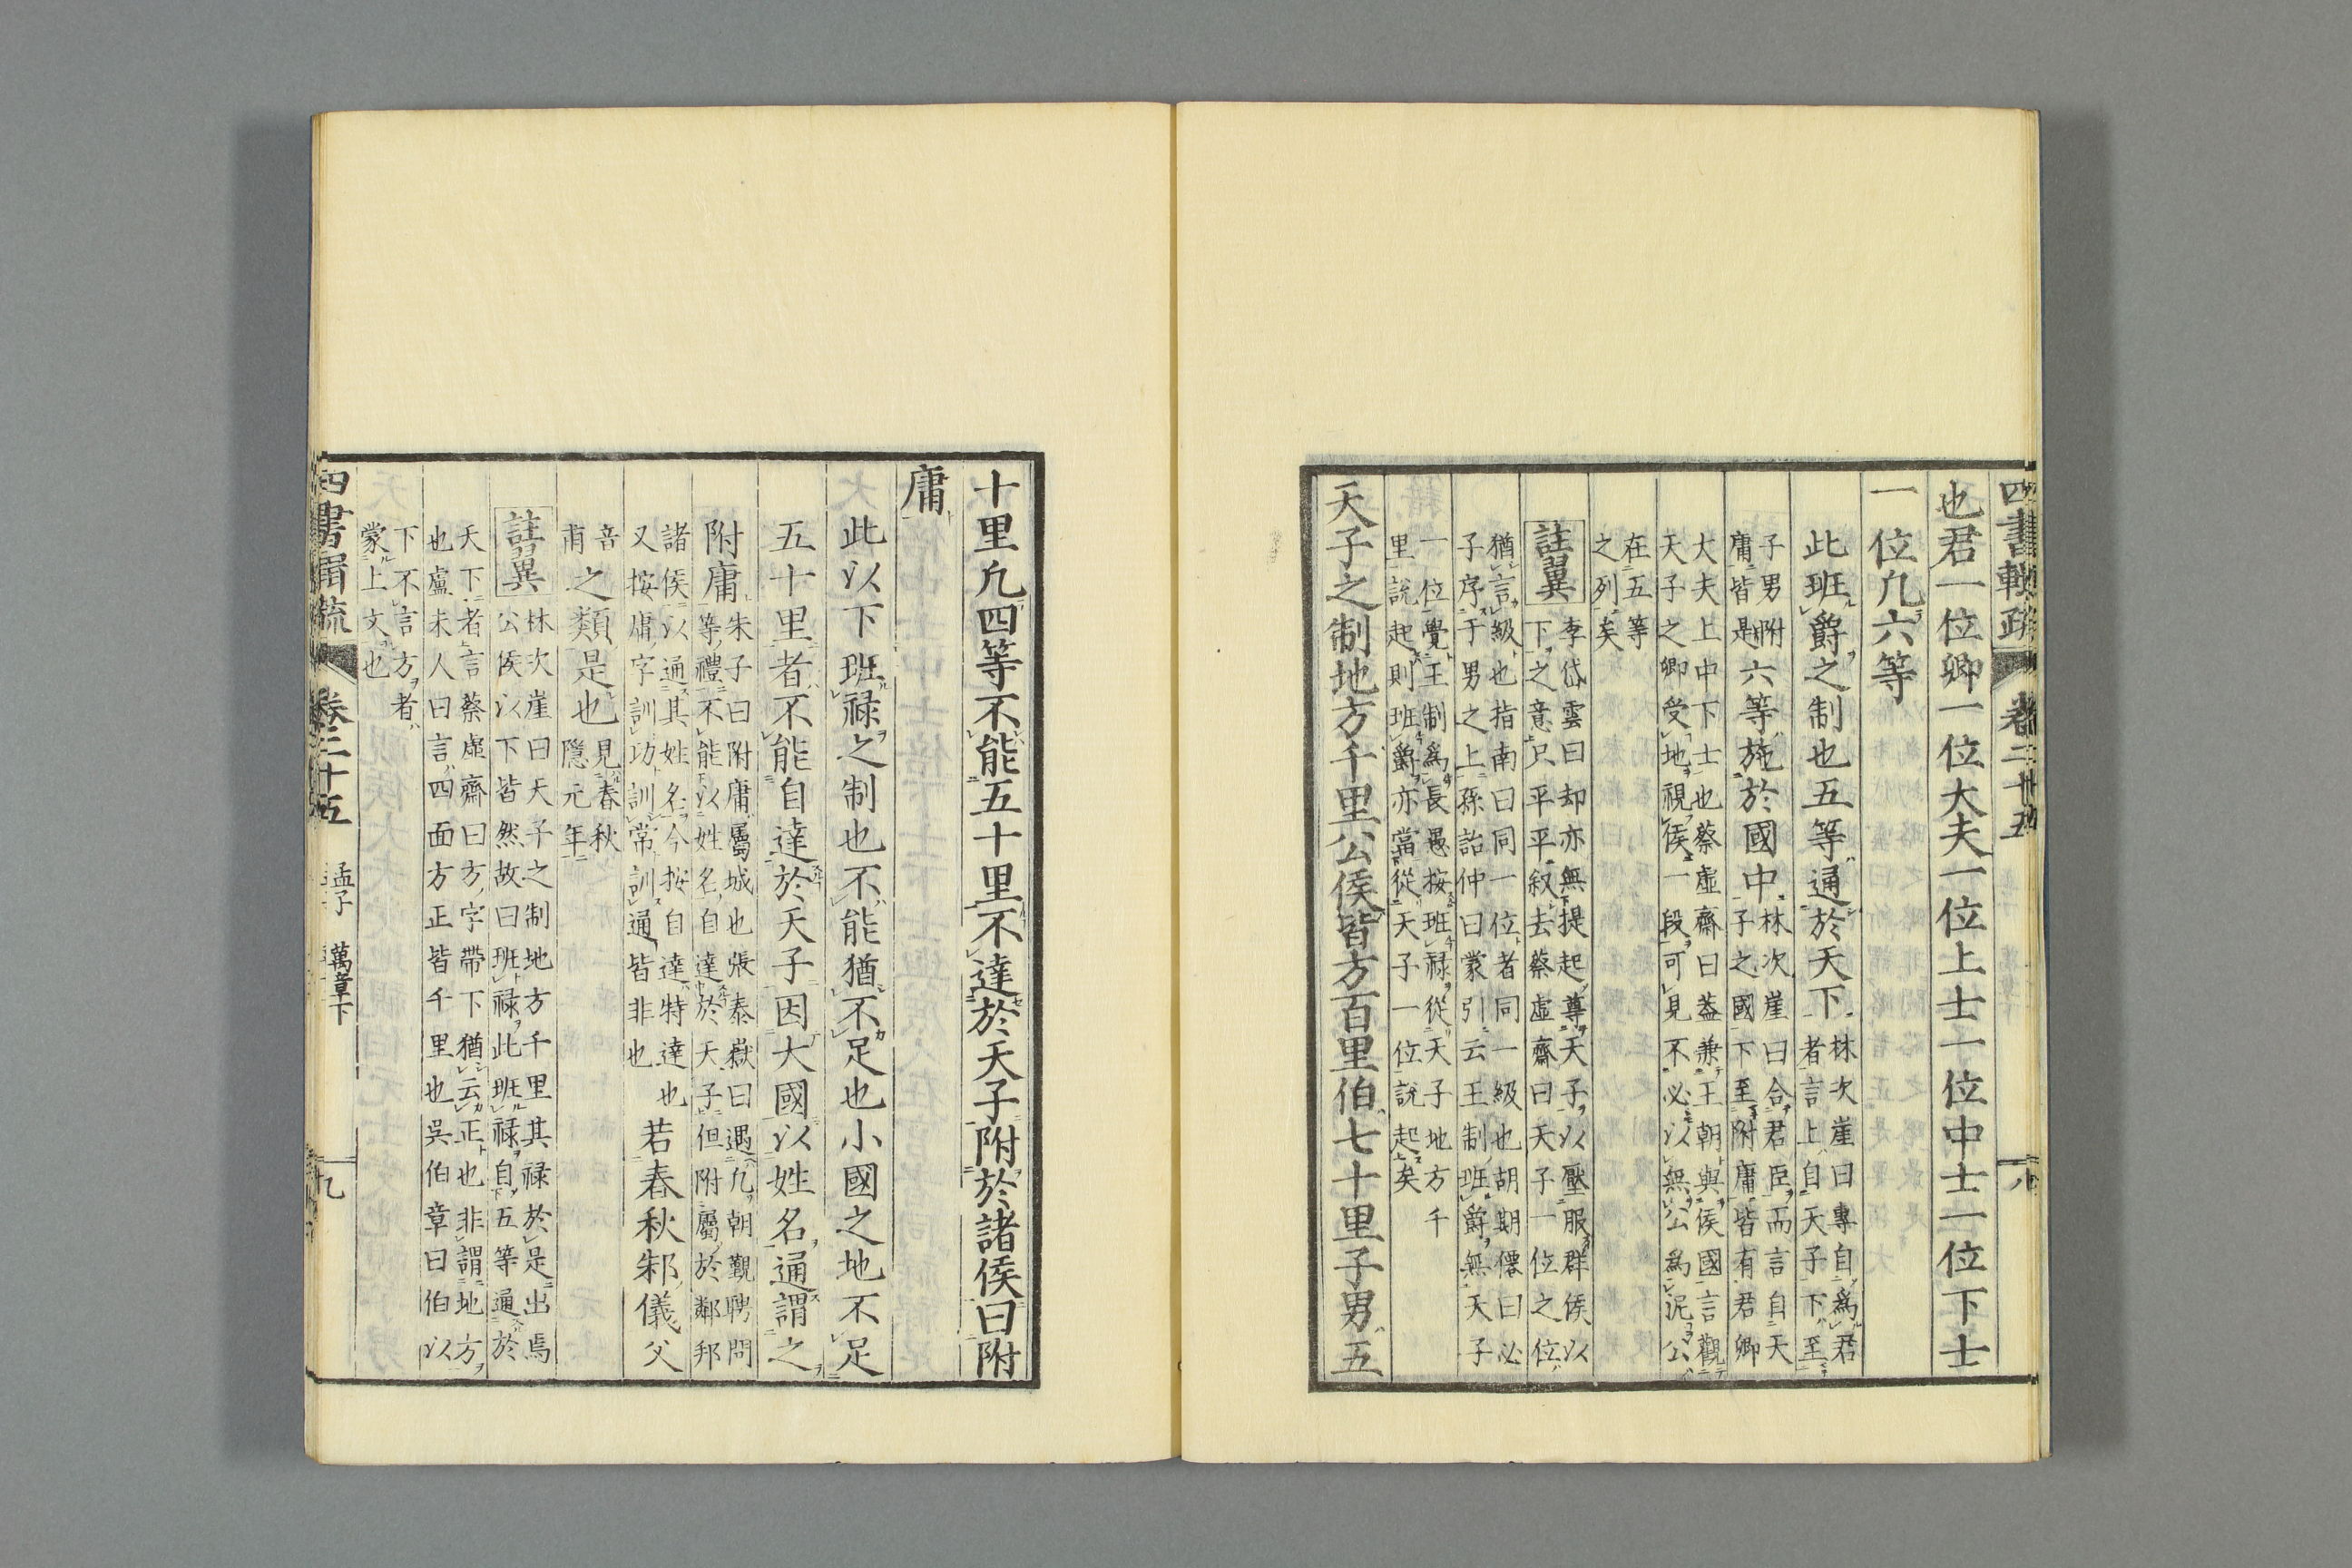 四書輯疏 卷二十五 八
也君一位卿一位大夫一位上士一位中士一位下士
一位凡六等
此班爵之制也五等通於天下林次崖曰專自爲君
者言上自天子下至
子男附
庸皆是六等施於國中林次崖曰合君臣而言自天
子之國下至附庸皆有君卿
大夫上中下士也蔡虛齋曰葢兼王朝與侯國言觀
天子之卿受地視侯一段可見不必以無公爲泥公
在五等
之列矣
註翼 李岱雲曰却亦無提起尊天子以壓服群侯以
下之意只平平叙去蔡虛齋曰天子一位之位
猶言級也指南曰同一位者同一級也胡期僊曰必
子序于男之上孫詒仲曰蒙引云王制班爵無天子
一位覺王制爲長愚按班禄從天子地方千
里說起則班爵亦當從天子一位說起矣
天子之制地方千里公侯皆方百里伯七十里子男五
十里凡四等不能五十里不達於天子附於諸侯曰附
庸
此以下班禄之制也不能猶不足也小國之地不足
五十里者不能自達於天子因大國以姓名通謂之
附庸朱子曰附庸屬城也張泰嶽曰遇凡朝覲聘問
等禮不能以姓名自達於天子但附屬於鄰邦
諸侯以通其姓名今按自達特達也
又按庸字訓功訓常訓通皆非也若春秋邾儀父
音
甫之類是也見春秋
隱元年
註翼 林次崖曰天子之制地方千里其禄於是出焉
公侯以下皆然故曰班禄此班禄自五等通於
天下者言蔡虛齋曰方字帶下猶云正也非謂地方
也盧未人曰言四面方正皆千里也吳伯章曰伯以
下不言方者
蒙上文也
四書輯疏 卷二十五 孟子 萬章下 九